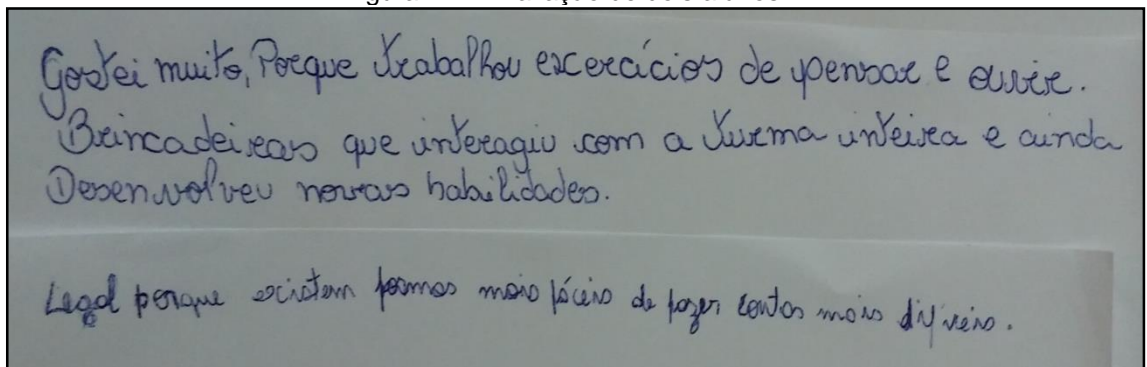 Gostei muito, Porque trabalhou excercícios de pensar e ouvir.
Brincadeiras que interagiu com a turma inteira e ainda
Desenvolveu novas habilidades.
Legal porque existem formas mais fáceis de fazer contas mais difíceis.